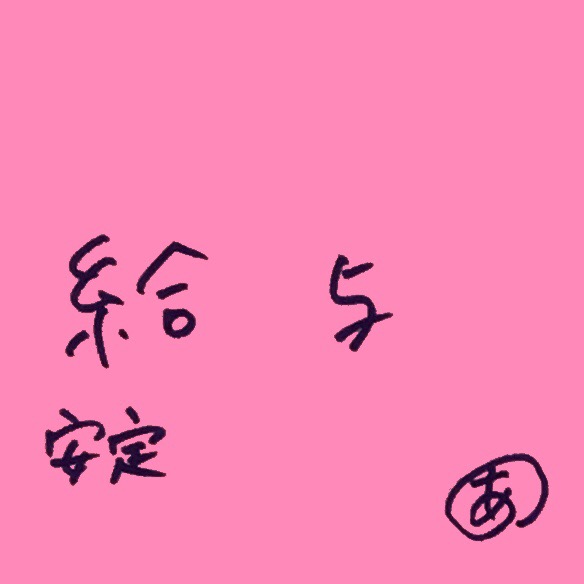 給 与
安定
あ